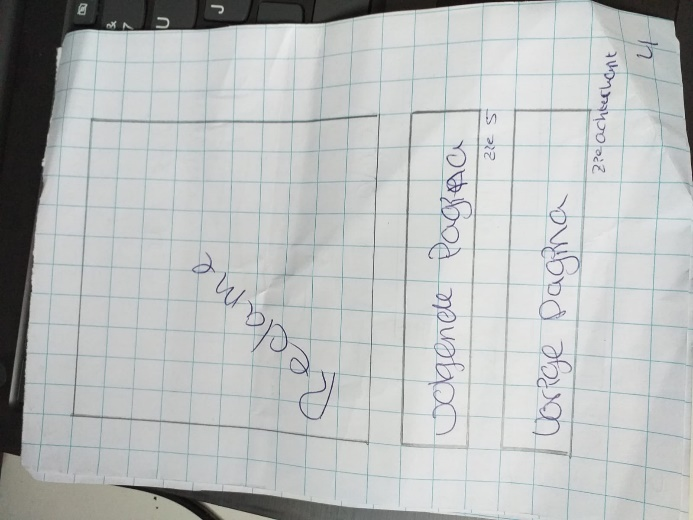 Reclame
volgende Pagina
zie 5
vorige pagina
zie achterkant
4